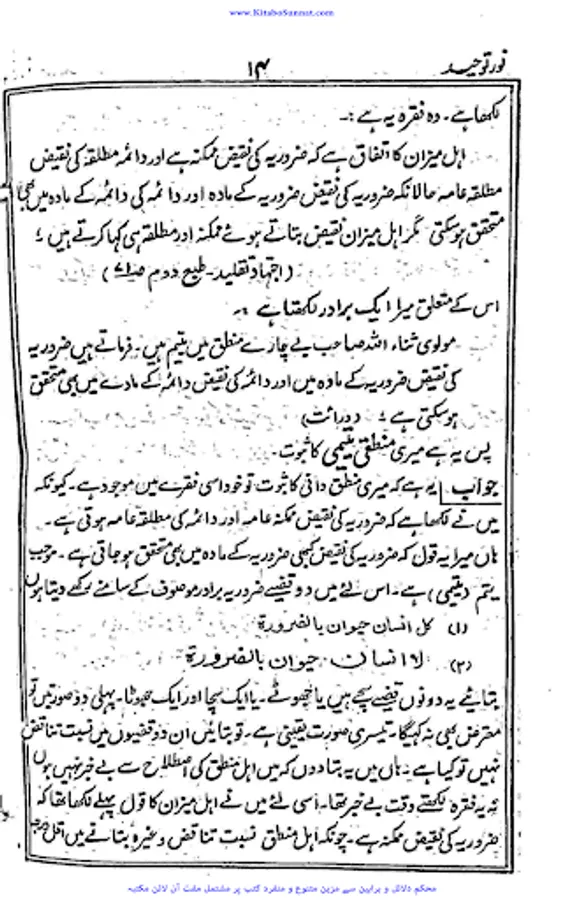 www.KitaboSunnat.com
نور توحید
۱۴
لکھا ہے۔ وہ فقرہ یہ ہے :۔
اہل میزان کا اتفاق ہے کہ ضروریہ کی نقیض ممکنہ ہے اور دائمہ مطلقہ کی نقیض
مطلقہ عامہ حالانکہ ضروریہ کی نقیض ضروریہ کے مادہ اور دائمہ کی دائمہ کے مادہ میں بھی
متحقق ہوسکتی مگر اہل میزان نقیض بتاتے ہوئے ممکنہ اور مطلقہ ہی کہا کرتے ہیں ؛
(اجتہاد تقلید۔ طبع دوم
اس کے متعلق میرا ایک برادر لکھتا ہے
مولوی ثناء اللہ صاحب بے چارے منطق میں یتیم ہیں۔ فرماتے ہیں ضروریہ
کی نقیض ضروریہ کے مادہ میں اور دائمہ کی نقیض دائمہ کے مادے میں بھی متحقق
ہوسکتی ہے ؛
پس یہ ہے میری منطقی یتیمی کا ثبوت۔
جواب یہ ہے کہ میری منطق دانی کا ثبوت تو خود اسی فقرے میں موجود ہے۔ کیونکہ
میں نے لکھا ہے کہ ضروریہ کی نقیض ممکنہ عامہ اور دائمہ کی مطلقہ عامہ ہوتی ہے۔
ہاں میرا یہ قول کہ ضروریہ کی نقیض کبھی ضروریہ کے مادہ میں بھی متحقق ہو جاتی ہے۔ موجب
یتم (یتیمی) ہے۔ اس لئے میں دو قضیے ضروریہ برادر موصوف کے سامنے رکھے دیتا ہوں
(۱) کل انسان حیوان بالضرورۃ
(۲) لا انسان حیوان بالضرورۃ
بتائیے یہ دونوں قضیے سچے ہیں یا جھوٹے۔ یا ایک سچا اور ایک جھوٹا۔ پہلی دو صورتیں تو
معترض بھی نہ کہیگا۔ تیسری صورت یقینی ہے۔ تو بتائیں ان دو قضیوں میں نسبت تناقض
نہیں تو کیا ہے۔ ہاں میں یہ بتادوں کہ میں اہل منطق کی اصطلاح سے بے خبر نہیں ہوں
نہ یہ فقرہ لکھتے وقت بے خبر تھا۔ اسی لئے میں نے اہل میزان کا قول پہلے لکھا تھا کہ
ضروریہ کی نقیض ممکنہ ہے۔ چونکہ اہل منطق نسبت تناقض وغیرہ بتانے میں اقل درجہ
محکم دلائل و براہین سے مزین متنوع و منفرد کتب پر مشتمل مفت آن لائن مکتبہ